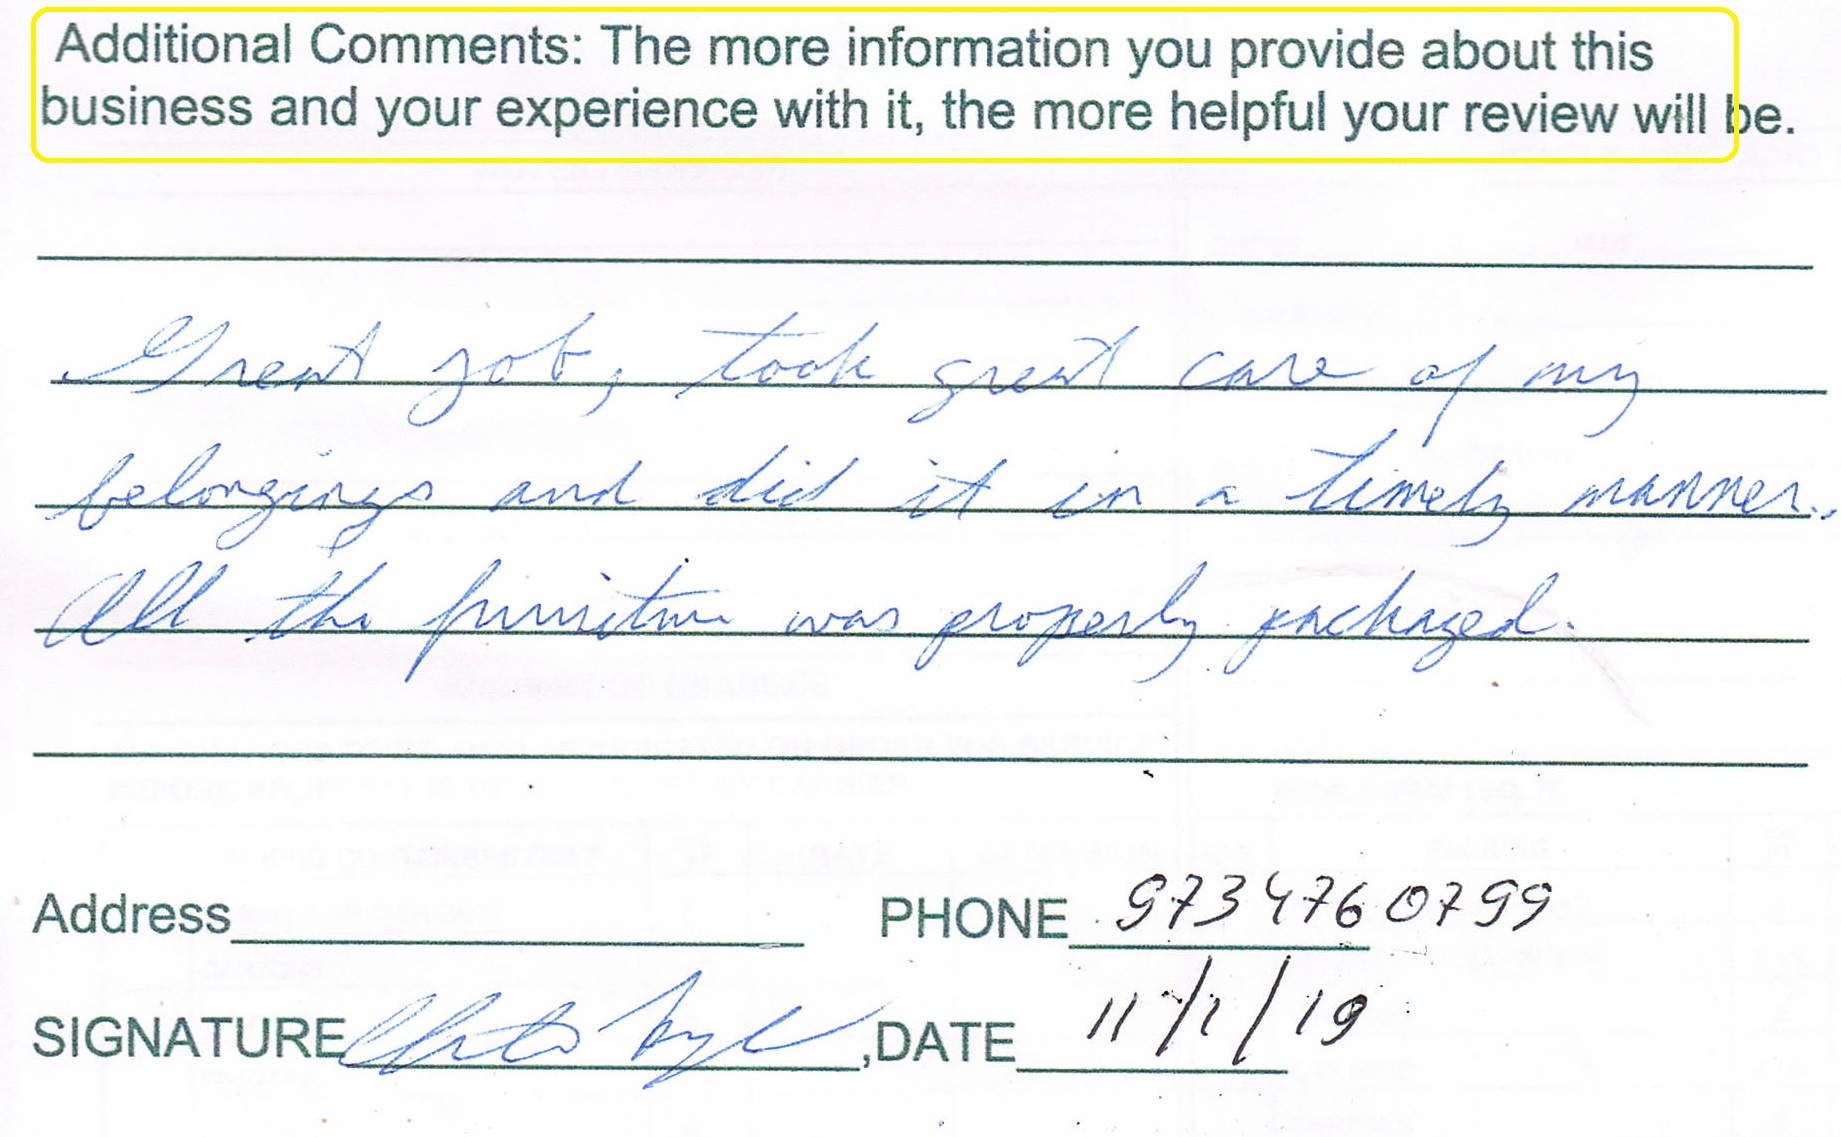 Additional Comments: The more information you provide about this
business and your experience with it, the more helpful your review will be.
Great job, took great care of my
belongings and did it in a timely manner.
All the furniture was properly packaged.
Address PHONE 9734760799
SIGNATURE ,DATE 11/1/19